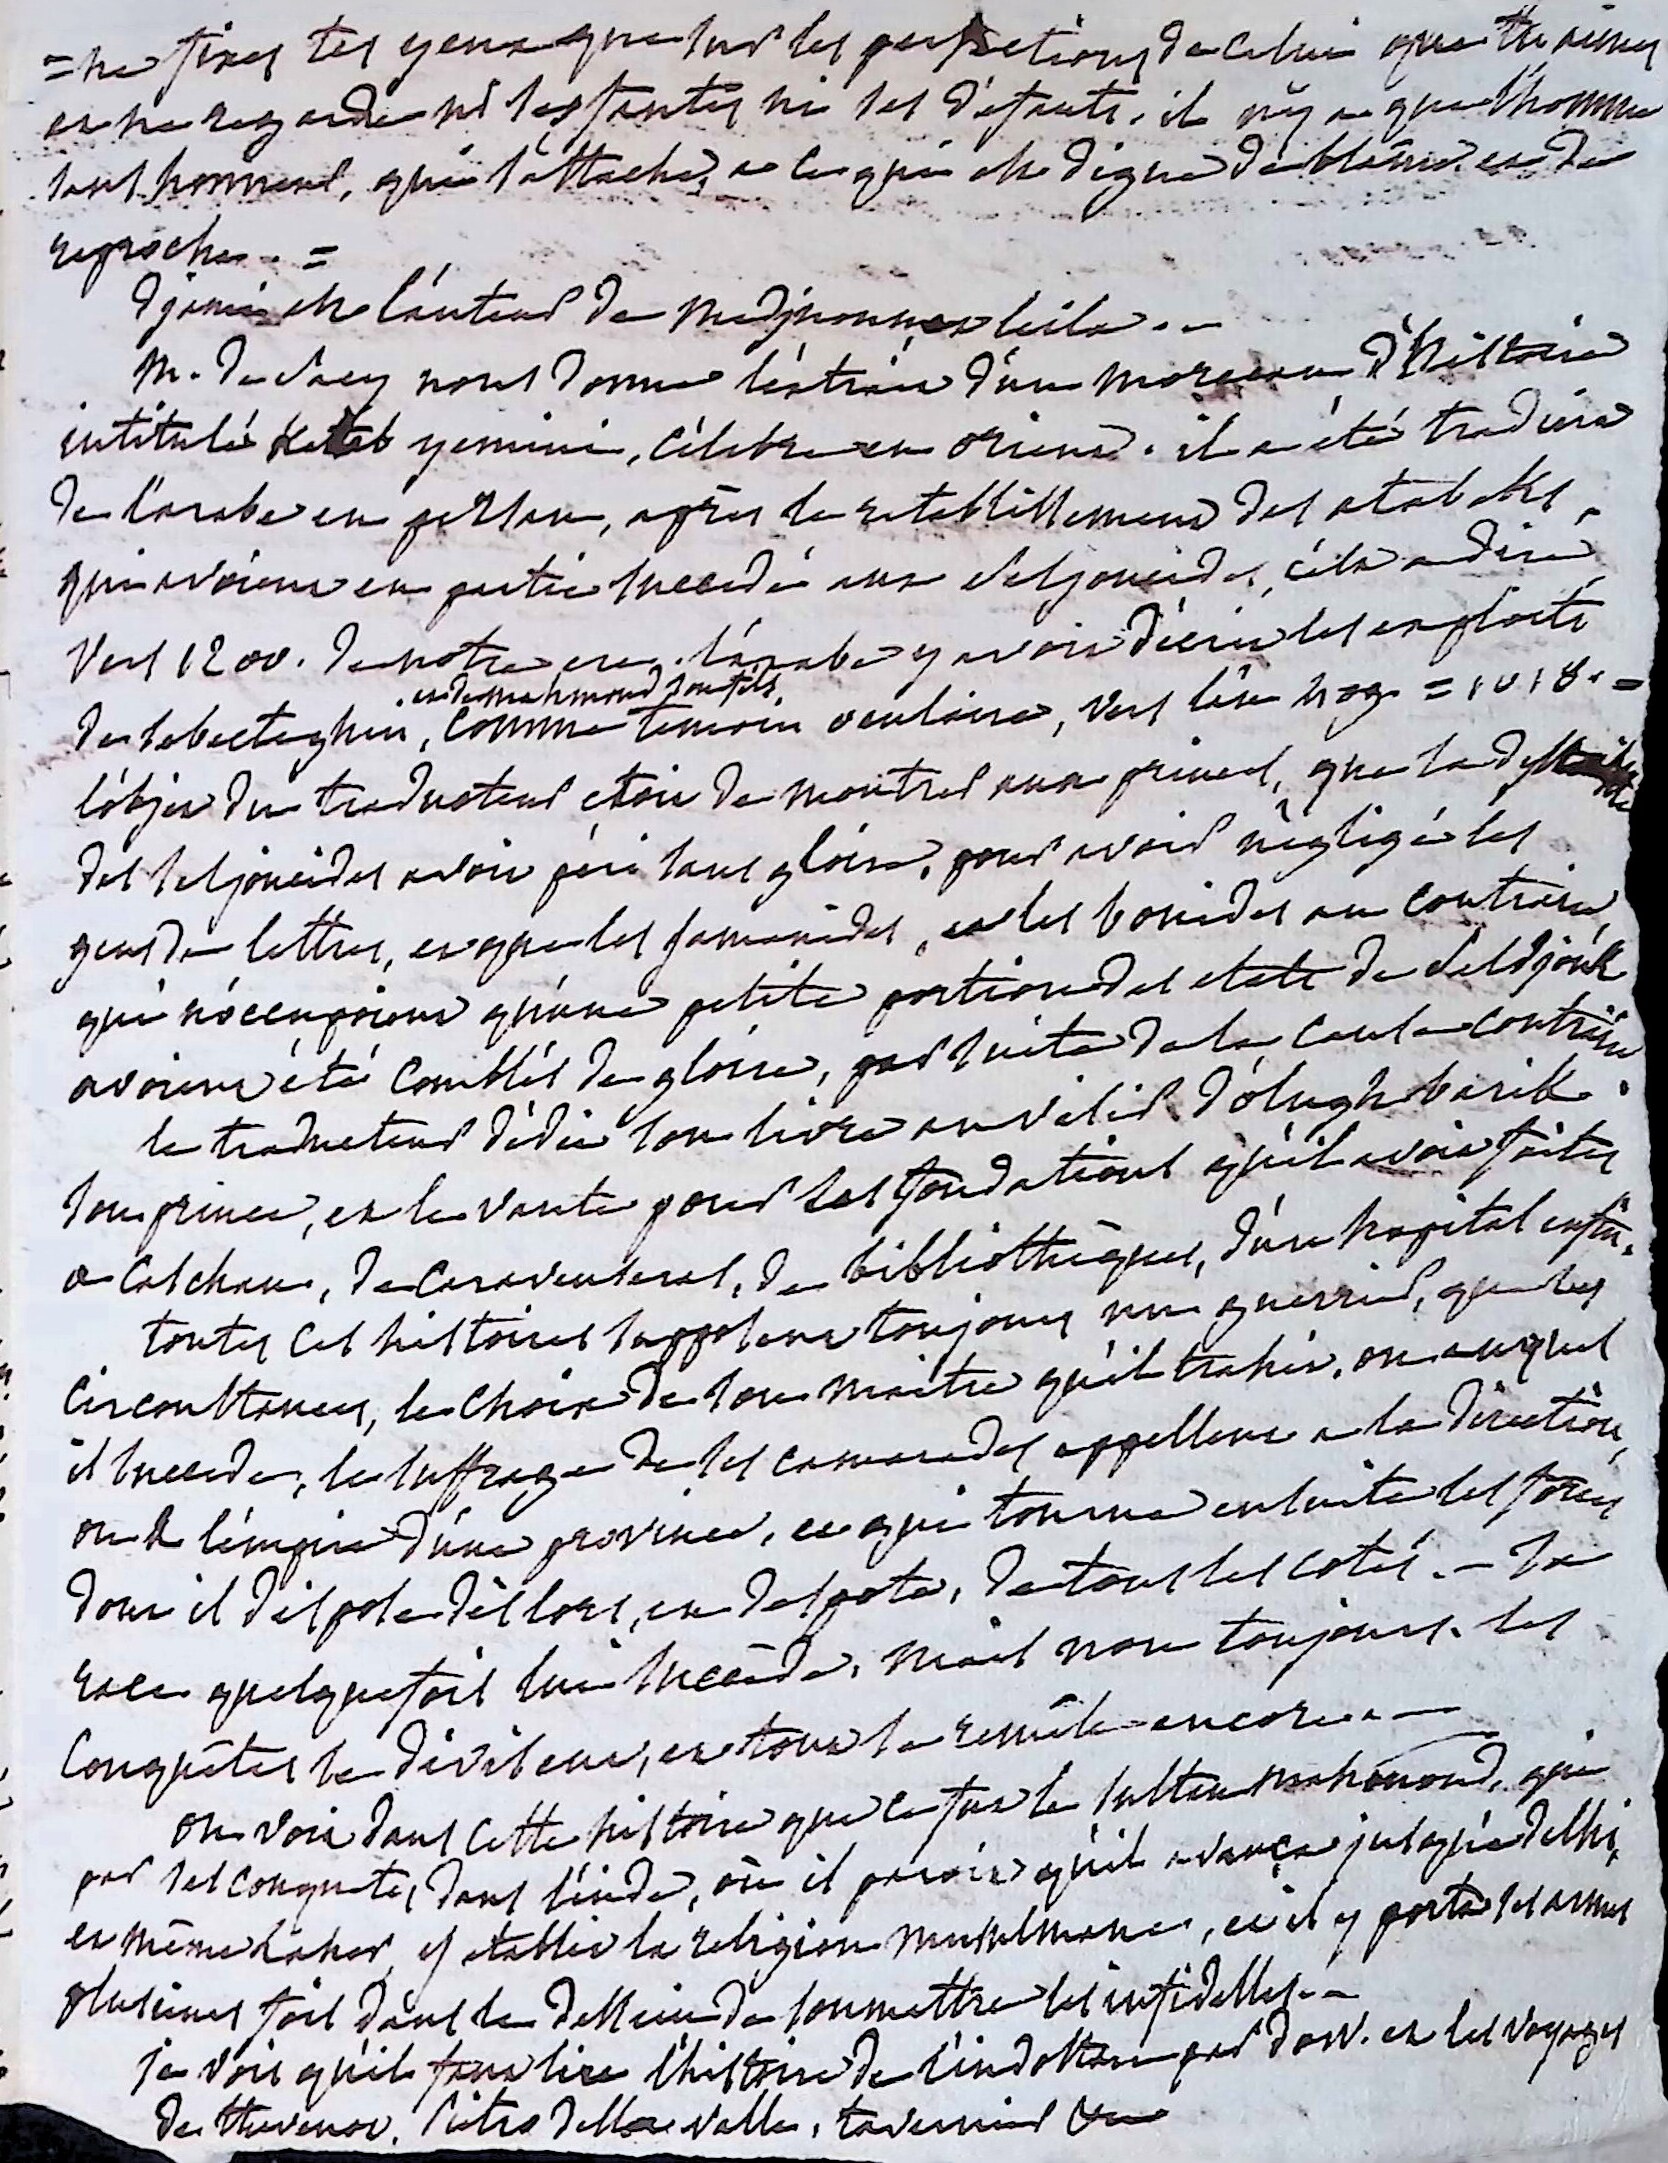 = ne fixes tes yeux que sur les perfections de celui que tu aimes
et ne regarde ni les fautes ni les défauts. il n'y a que l'homme
sans honneur, qui s'attache, a ce qui est digne de blâme et de
reproche. =
djami est l'auteur de medjnoun et leila. —
M. de Sacy nous donne l'extrait d'un morceau d'histoire
intitulé Ketab yemini, célebre en orient. il a été traduit
de l'arabe en persan, après le retablissement des atabeks,
qui avoient en partie succédé aux Seljoucides, c'est a dire
vers 1200. de notre ere. l'arabe y avoit décrit les exploits
de sebecteghin, et de mahmoud son fils, comme temoin oculaire, vers l'an 409 = 1018. =
l'objet du traducteur etoit de montrer aux princes, que la dynastie
des seljoucides avoit péri sans gloire, pour avoir négligé les
gens de lettres, et que les samanides, et les bouides au contraire,
qui n'occupoient qu'une petite portion des etats de Seldjouk
avoient été comblés de gloire, par suite de la cause contraire.
le traducteur dédie son livre au visir d'olugh barik
son prince, et le vante pour les fondations qu'il avoit faites
a Caschan, de caravenseras, de bibliothèques, d'un hopital enfin.
toutes ces histoires rappellent toujours un guerrier, que les
circonstances, le choix de son maitre qu'il trahit, ou auquel
il succede, le suffrage de ses camarades appellent a la direction,
ou a l'empire d'une province, et qui tourne ensuite les forces
dont il dispose dès lors, en despote, de tous les cotés. — sa
race quelquefois lui succède, mais non toujours. les
conquêtes se divisent, et tout se remêle encore. —
on voit dans cette histoire que ce fut le sultan mahmoud, qui
par ses conquetes, dans l'inde, où il paroit qu'il avança jusqu'a delhi,
et même lahor, y etablit la religion musulmane, et il y porta les armes
plusieurs fois dans le dessein de soumettre les infidelles. —
je vois qu'il faut lire l'histoire de l'indostan par dow. et les voyages
de thevenot, Pietro della valle, tavernier &c